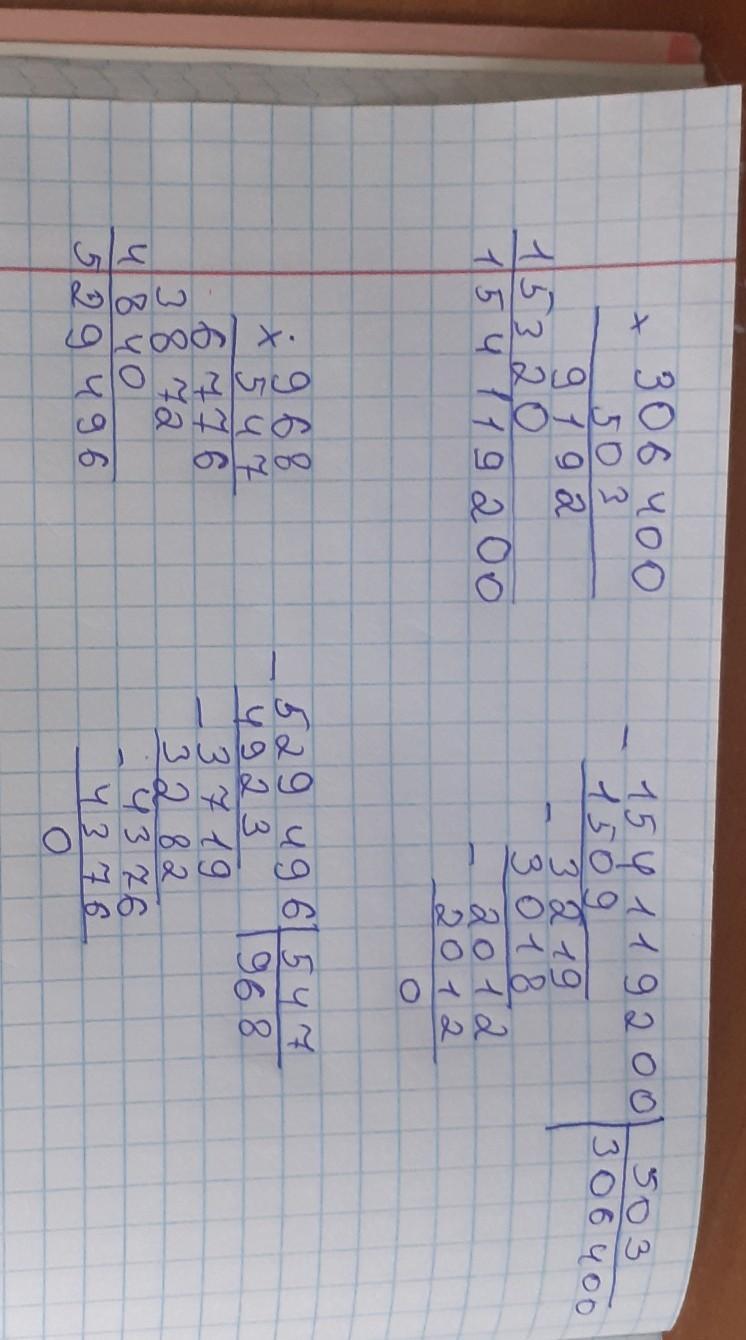 × 306400
503
9192
15320
154119200
- 154119200 | 503
1509 306400
- 3219
3018
- 2012
2012
0
× 968
547
6776
3872
4840
529496
- 529496 | 547
4923 968
- 3719
3282
- 4376
4376
0